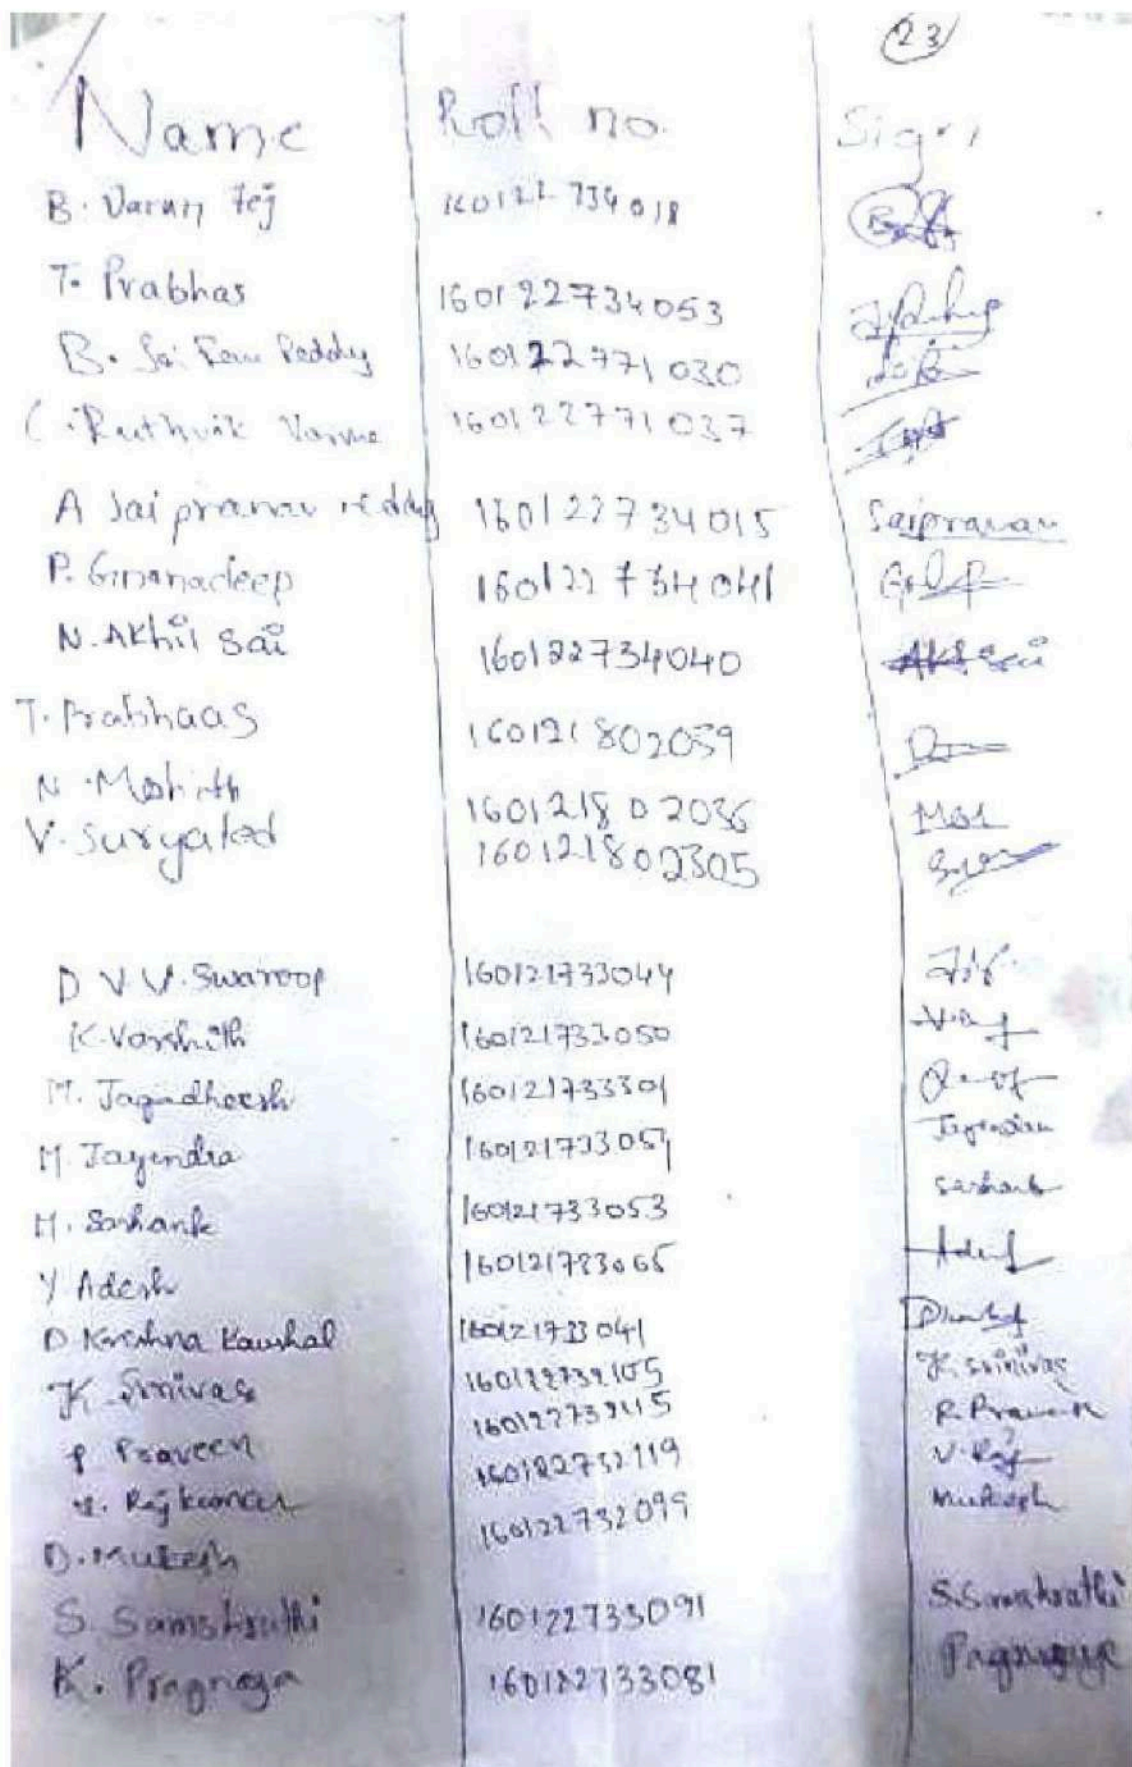 23
Name Roll no. Sign
B. Varun Tej 160122734018
T. Prabhas 160122734053
B. Sai Reddy 160122771030
C. Ruthvik Varma 160122771037
A Sai pranav reddy 160122734015 Saipranav
P. Gnanadeep 160122734041
N. Akhil Sai 160122734040
T. Prabhaas 160121802059
N. Mohith 160121802036
V. Suryated 160121802305
D V V. Swaroop 160121733044
K. Varshith 160121733050
M. Jagadheesh 160121733301
M. Jayendra 160121733051 Jayendra
M. Sashank 160121733053 Sashank
Y Adesh 160121733065
D Krishna Kaushal 160121733041
K. Srinivas 160122732105 K. Srinivas
P Praveen 160122732115 P. Praveen
V. Rajkumar 160122732119 V. Raj
D. Mukesh 160122732099 Mukesh
S. Samskruthi 160122733091 S. Samskruthi
K. Pragnaya 160122733081 Pragnaya